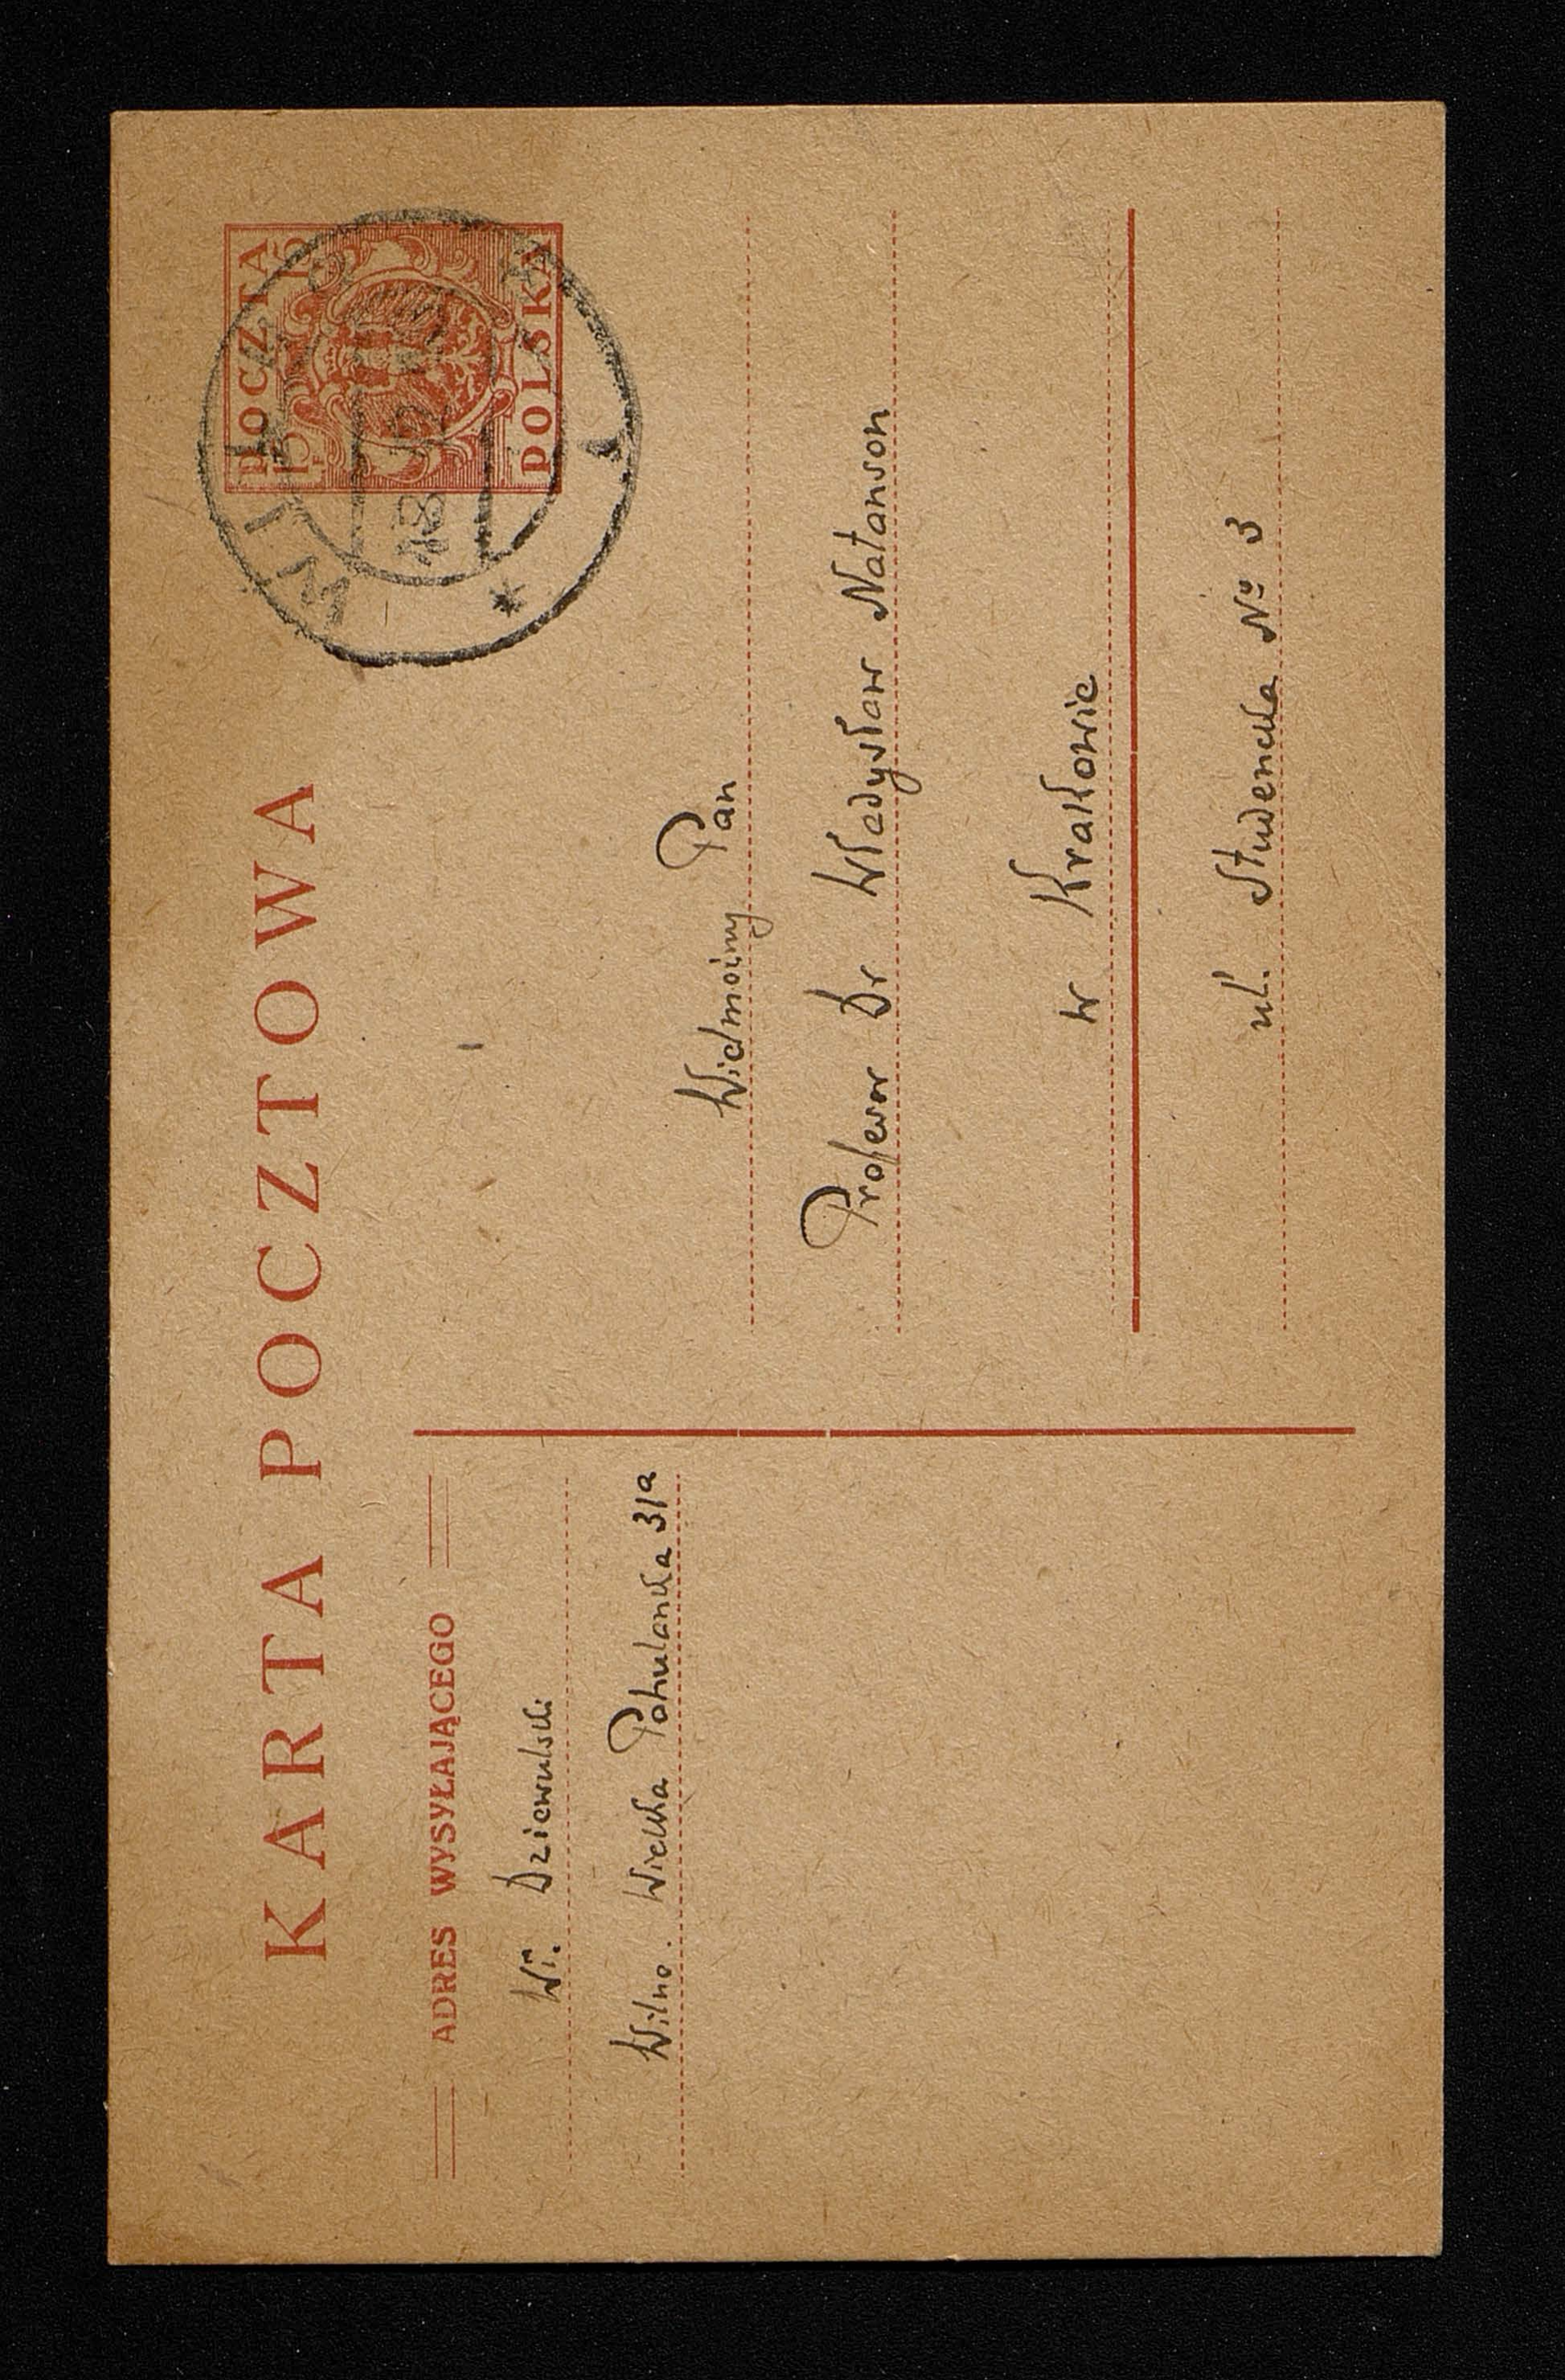 KARTA POCZTOWA
POCZTA
15 15
POLSKA
WILNO
ADRES WYSYŁAJĄCEGO
Wł. Dziewulski
Wilno. Wielka Pohulanka 31a
Wielmożny Pan
Profesor Dr Władysław Natanson
w Krakowie
ul. Studencka № 3